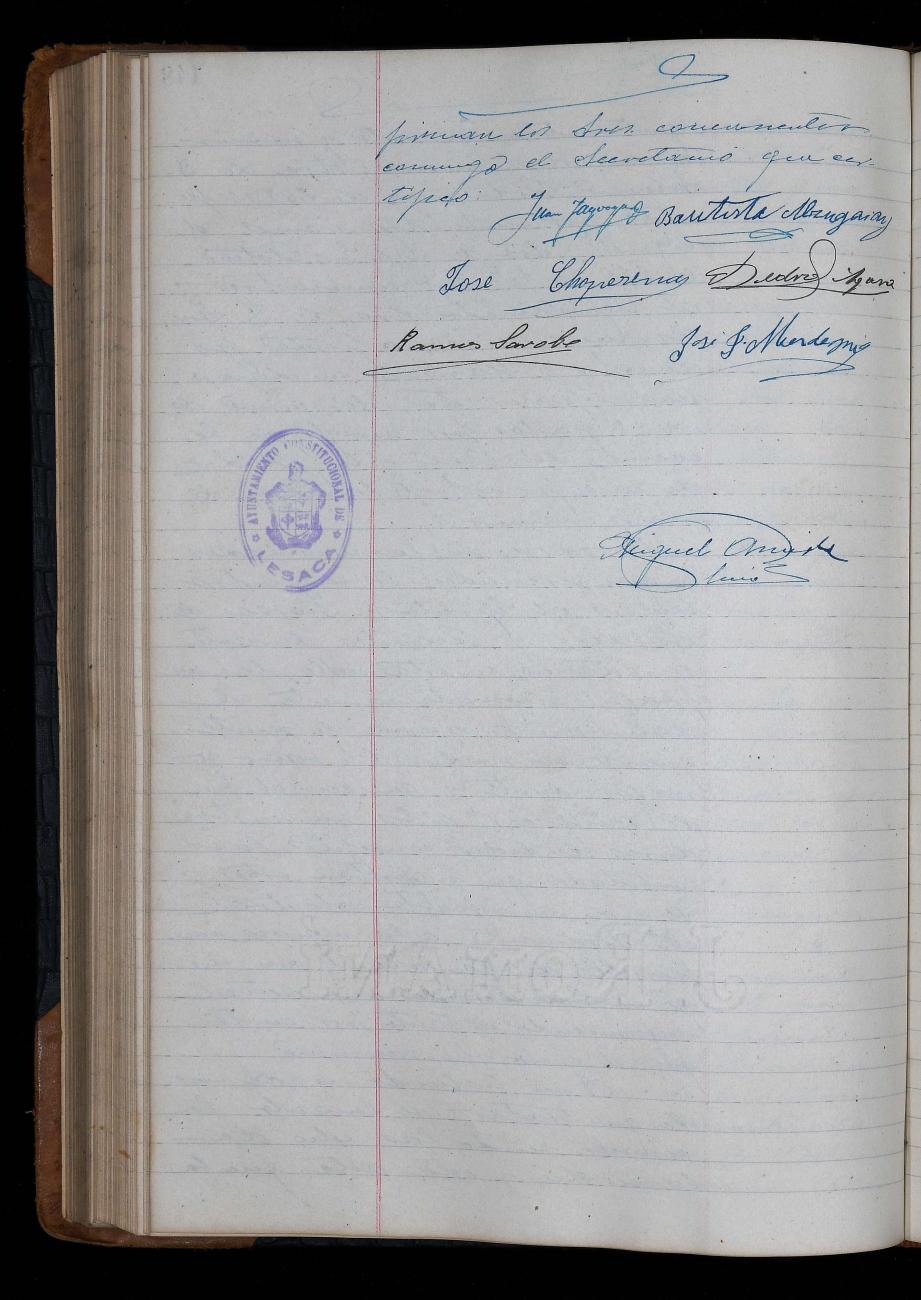 firman los Sres. concurrentes
conmigo el Secretario que cer-
tifico:
Juan Bautista
Jose Choperena Pedro
Ramon Sarobe José
AYUNTAMIENTO CONSTITUCIONAL DE
LESACA
Miguel
J ROMANI